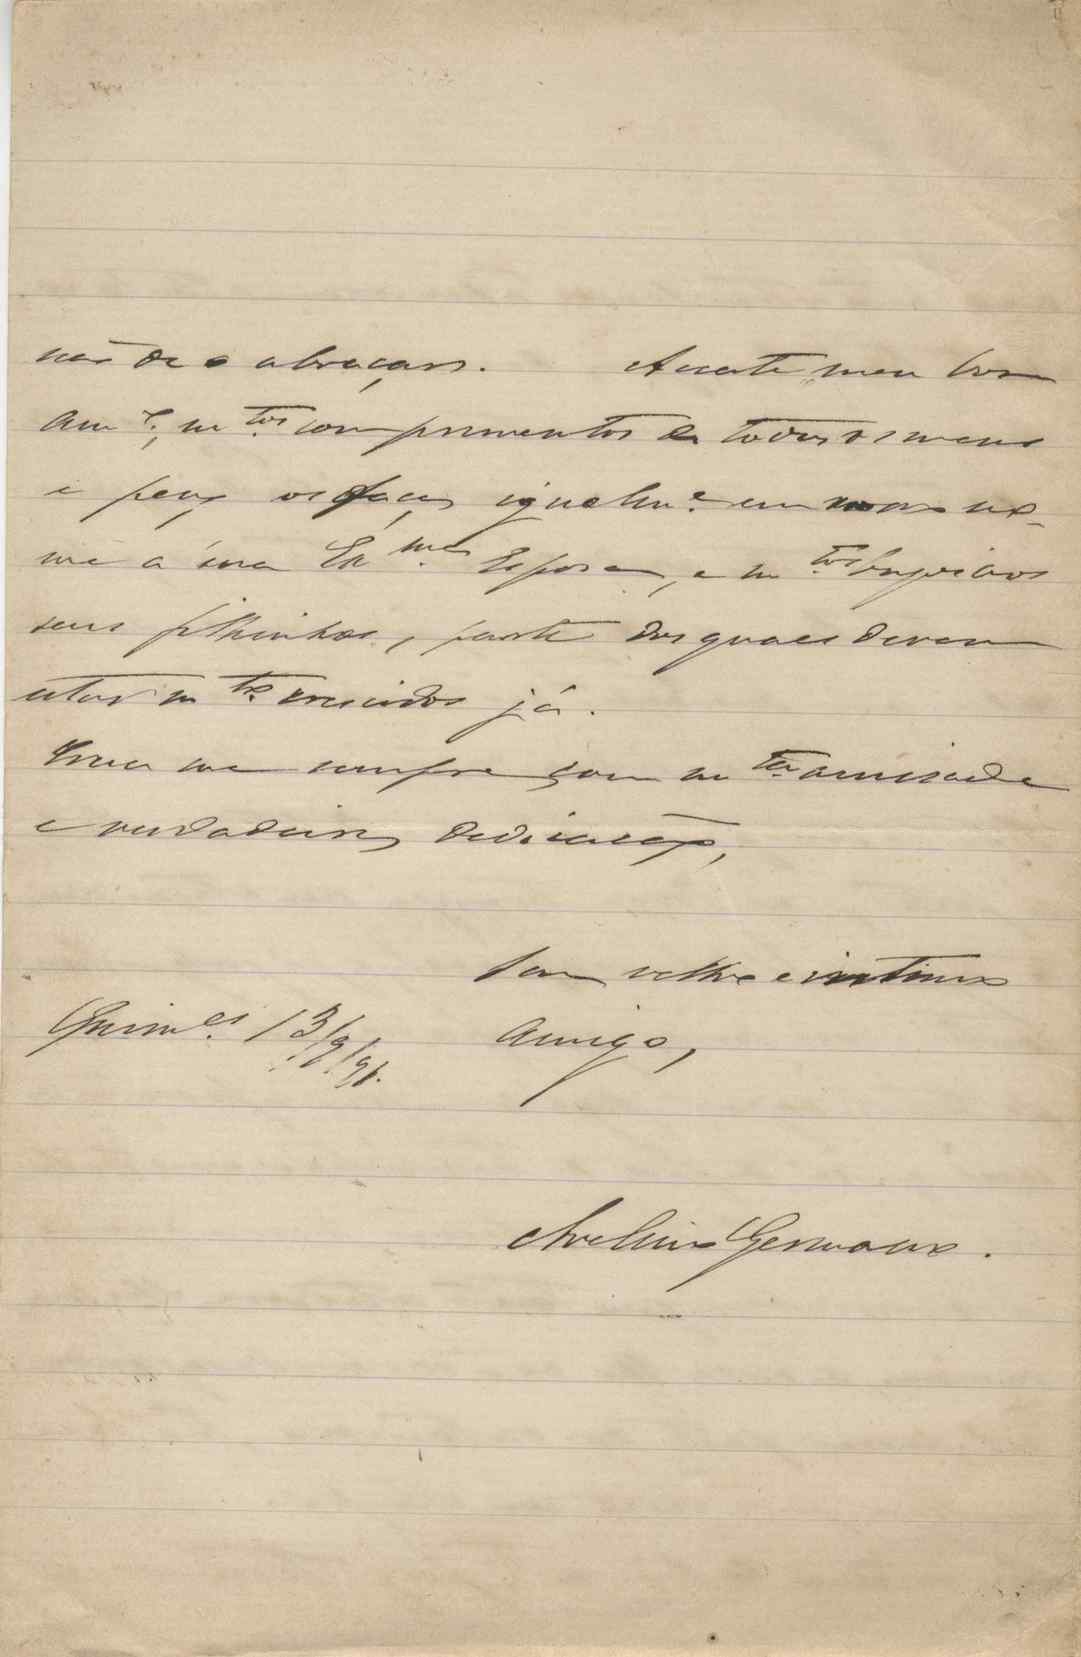 não de o abraçar. Acceite, meu bom
Am.º, m.tos comprimentos de todos os meus
e peço os faça igualm.e em meu no-
me á sua Ex.ma Esposa, e m.tos beijos aos
seus filhinhos, parte dos quaes devem
estar m.to crescidos já.
Creia me sempre com m.ta amisade
e verdadeira dedicação,
Seu velho e intimo
Guim.es 13/9/91. amigo,
Avelino Germano.